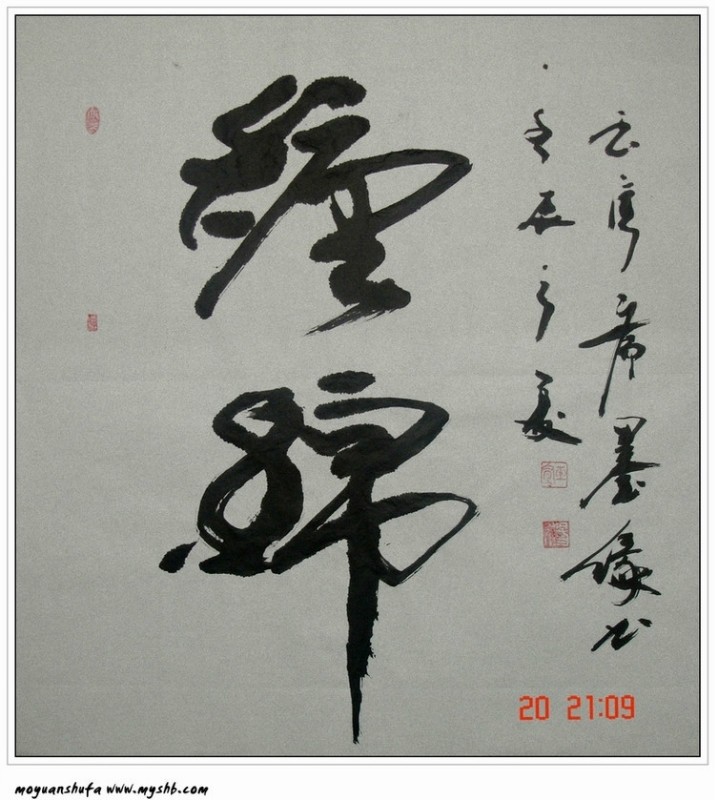 纏綿
壬辰之夏
墨缘书
20 21:09
moyuanshufa www.myshb.com